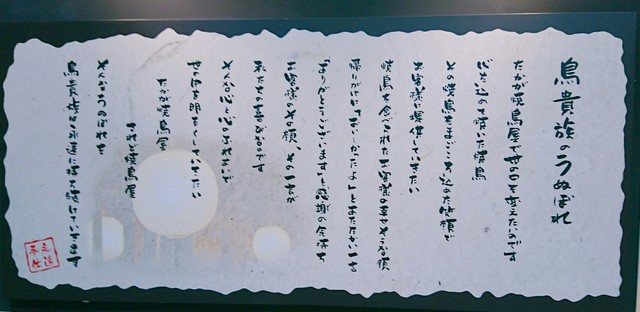 鳥貴族のうぬぼれ
たかが焼鳥屋で世の中を変えたいのです
じたいじの焼いた焼鳥
その焼鳥をまごころ込めた笑顔で
お客様に提供していきたい
焼鳥を食べられたお客様の幸せそうな顔
帰りがけに「おいしかったよ」とあたたかい一言
「ありがとうございます」と感謝の気持ち
お客様のその顔、その一言が
私たちの喜びなのです
そんな心と心のふれあいで
世の中を明るくしていきたい
たかが焼鳥屋
されど焼鳥屋
そんなうぬぼれを
鳥貴族は永遠に持ち続けていきます